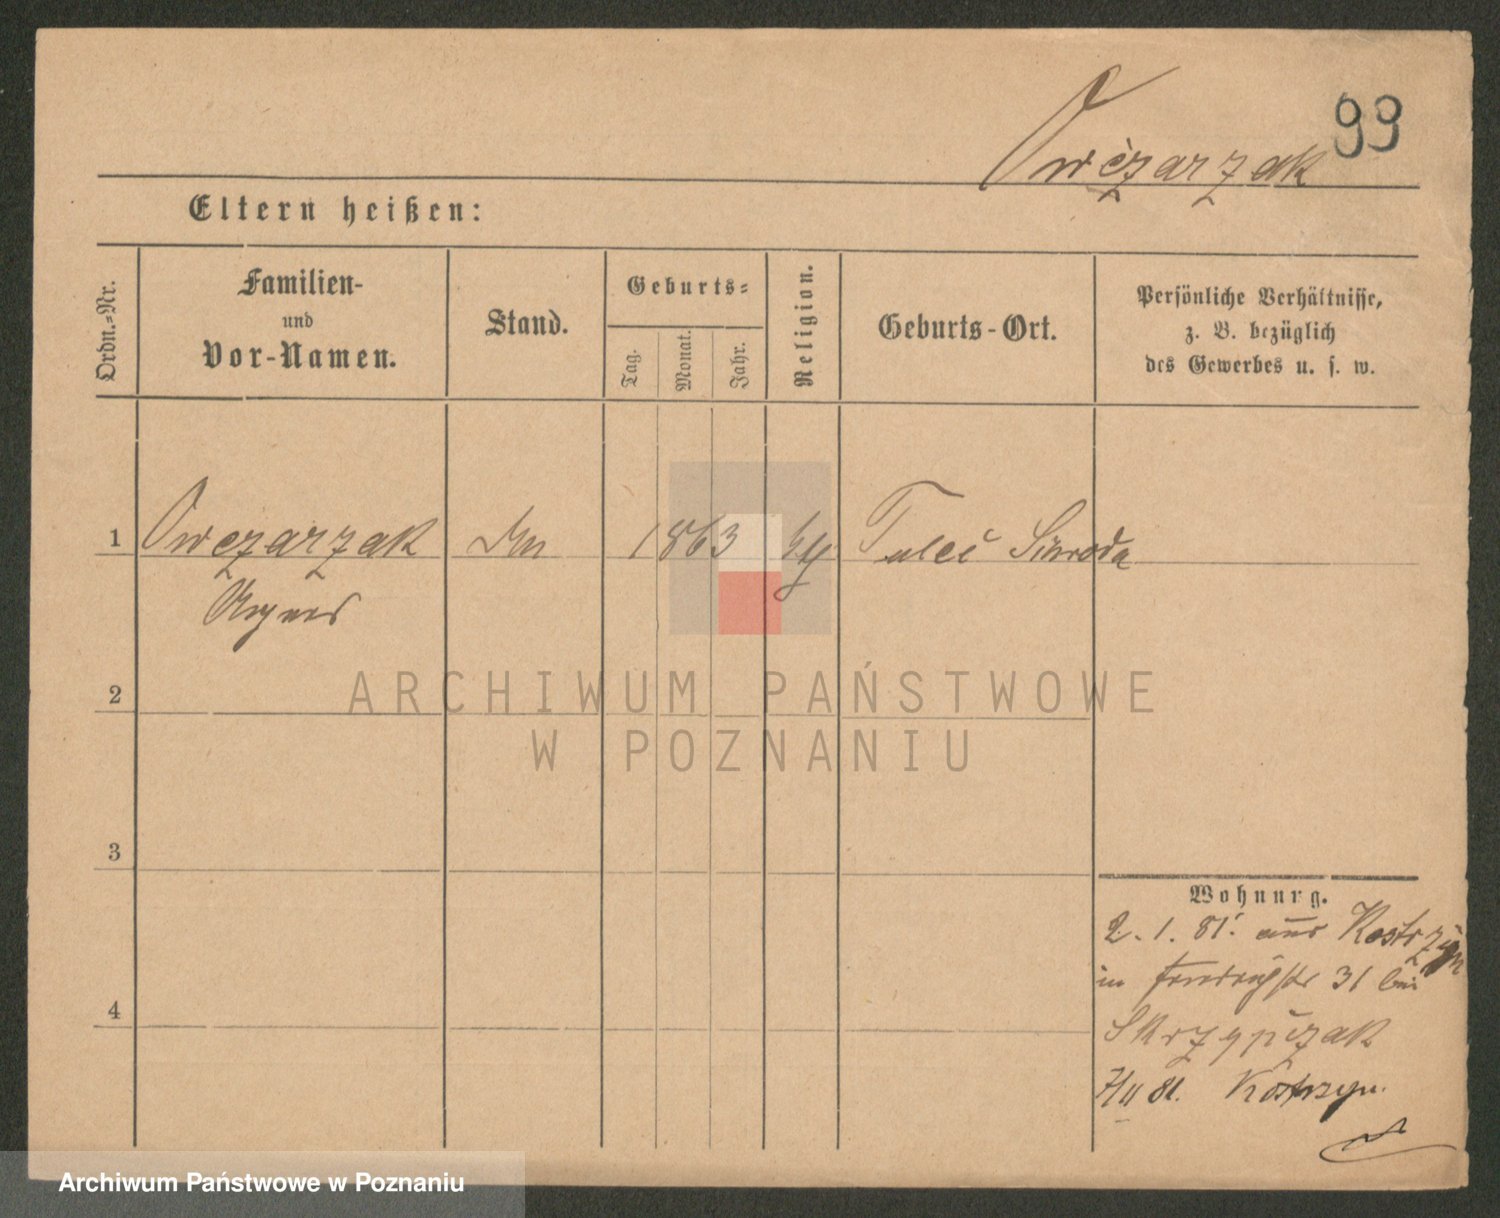 99
Owczarzak
Eltern heißen:
Ordn.=Nr.
Familien-
und
Vor-Namen.
Stand.
Geburts=
Tag.
Monat.
Jahr.
Religion.
Geburts-Ort.
Persönliche Verhältnisse,
z. B. bezüglich
des Gewerbes u. s. w.
1 Owczarzak 1863 Schroda
Agnes
2
ARCHIWUM PAŃSTWOWE
W POZNANIU
3
Wohnung.
2. 1. 81. aus Kostrzyn
4
in Friedrichstr 31 bei
Skrzypczak
7/11 81. Kostrzyn.
Archiwum Państwowe w Poznaniu